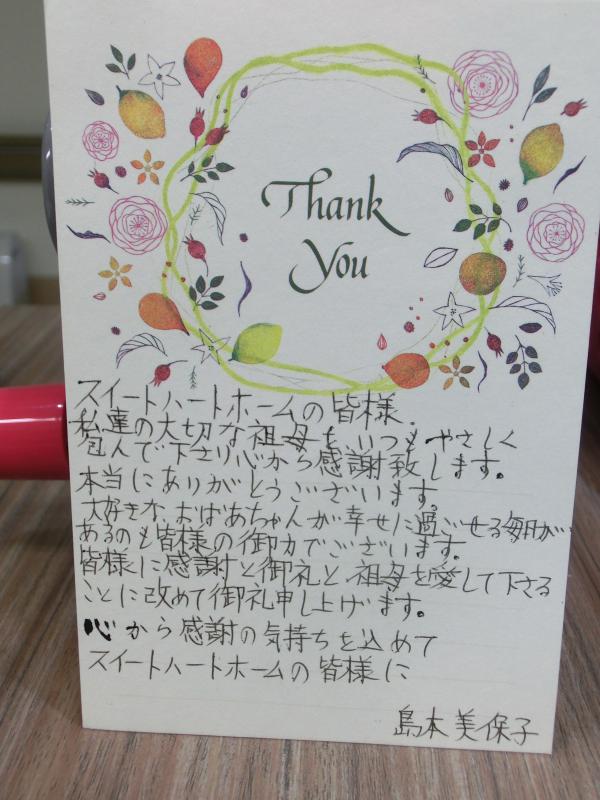 Thank
You
スイートハートホームの皆様、
私達の大切な祖母を、いつもやさしく
包んで下さり心から感謝致します。
本当にありがとうございます。
大好きな、おばあちゃんが幸せに過ごせる毎日が…
あるのも皆様の御力でございます。
皆様に感謝と御礼と、祖母を愛して下さる
ことに改めて御礼申し上げます。
心から感謝の気持ちを込めて
スイートハートホームの皆様に
島本美保子